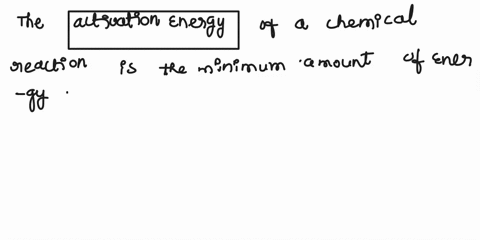 The activation energy of a chemical
reaction is the minimum amount of ener
-gy.